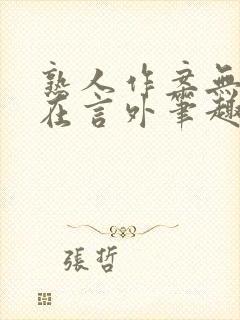 熟人作案無
在言外筆趣
張哲